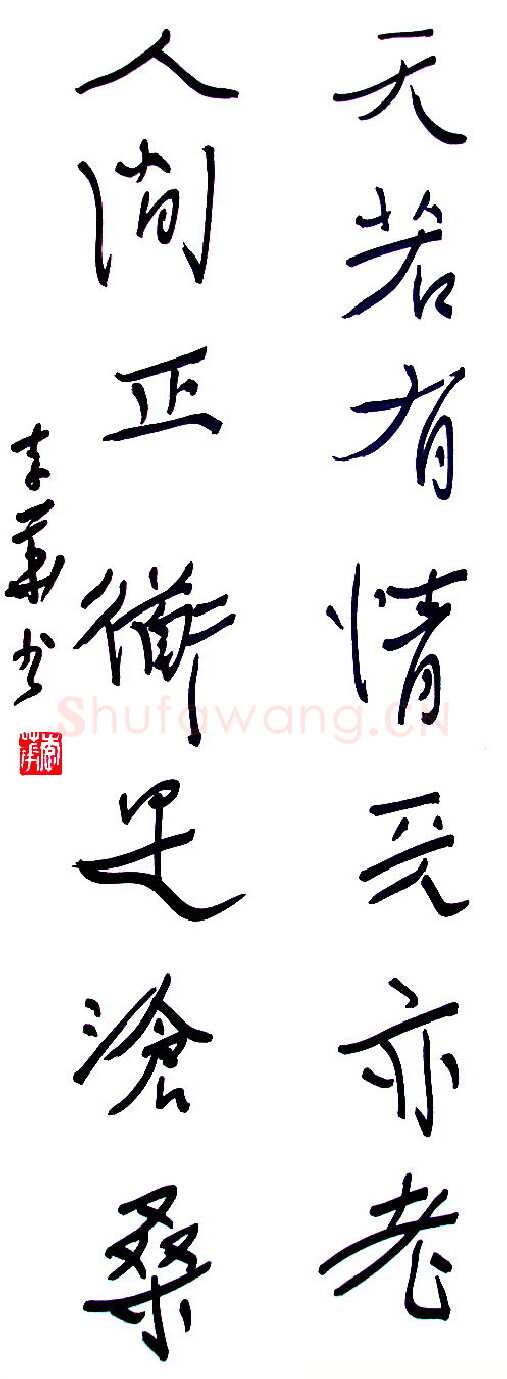 天若有情天亦老
人间正衜是滄桑
李華书
李華
Shufawang.CN